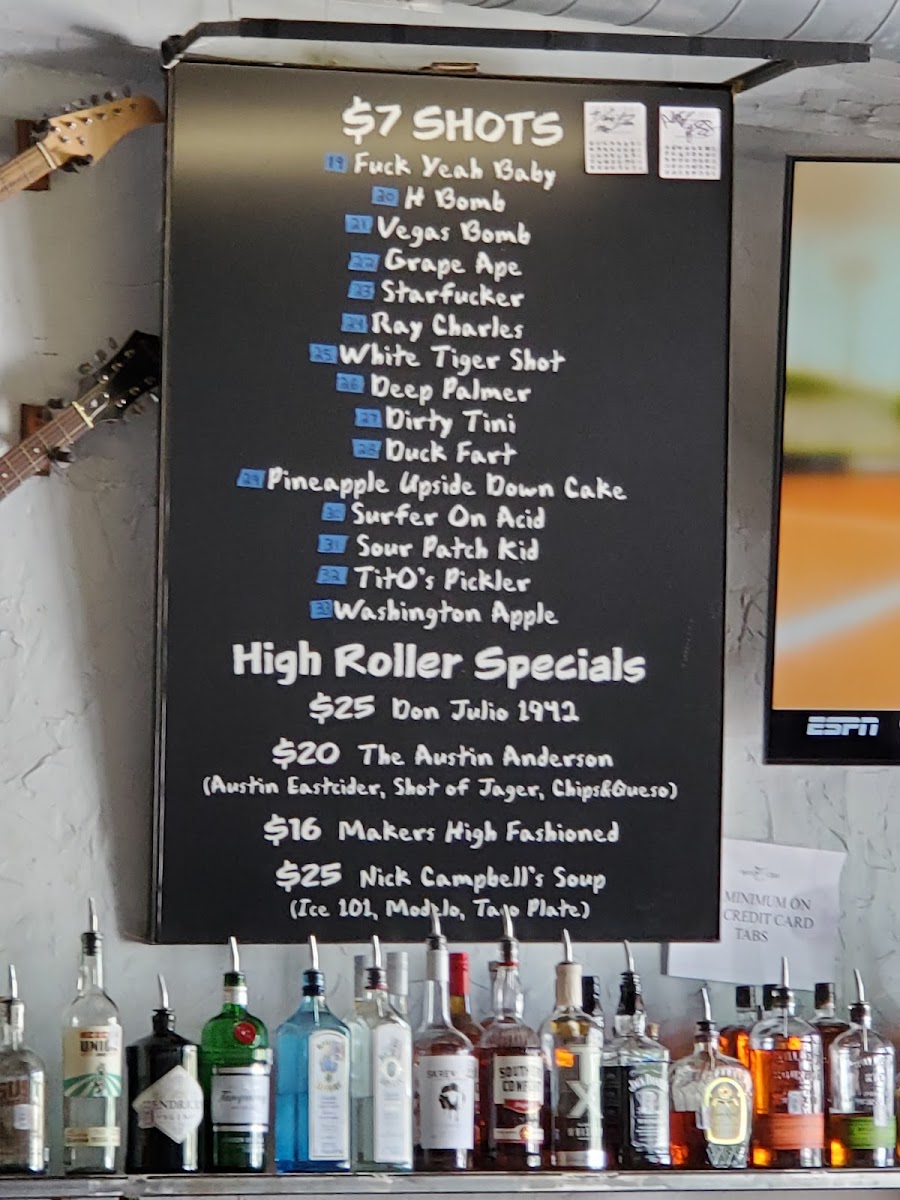 $7 SHOTS
19 Fuck Yeah Baby
20 H Bomb
21 Vegas Bomb
22 Grape Ape
23 Starfucker
24 Ray Charles
25 White Tiger Shot
26 Deep Palmer
27 Dirty Tini
28 Duck Fart
29 Pineapple Upside Down Cake
30 Surfer On Acid
31 Sour Patch Kid
32 TitO's Pickler
33 Washington Apple
High Roller Specials
$25 Don Julio 1942
$20 The Austin Anderson
(Austin Eastcider, Shot of Jager, Chips&Queso)
$16 Makers High Fashioned
$25 Nick Campbell's Soup
(Ice 101, Modelo, Taco Plate)
ESPN
MINIMUM ON
CREDIT CARD
TABS
UNI
HENDRICK
Tanqueray
SKREW
SOUTHE
COMF
X
JACK DANIEL